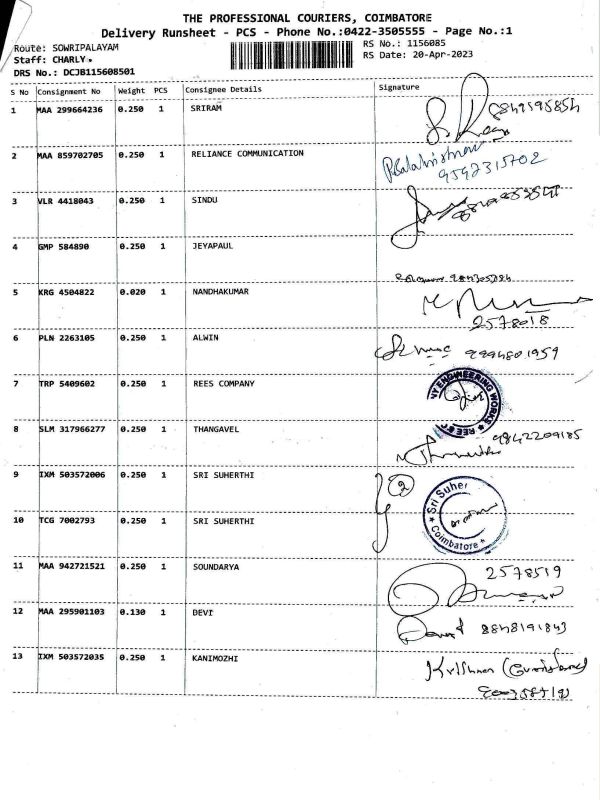 THE PROFESSIONAL COURIERS, COIMBATORE
Delivery Runsheet - PCS - Phone No.:0422-3505555 - Page No.:1
Route: SOWRIPALAYAM
RS No.: 1156085
Staff: CHARLY.
RS Date: 20-Apr-2023
DRS No.: DCJB115608501
S No Consignment No Weight PCS Consignee Details Signature
1 MAA 299664236 0.250 1 SRIRAM
2 MAA 859702705 0.250 1 RELIANCE COMMUNICATION
9597315702
3 VLR 4418043 0.250 1 SINDU
4 GMP 584890 0.250 1 JEYAPAUL
5 KRG 4504822 0.020 1 NANDHAKUMAR
2578018
6 PLN 2263105 0.250 1 ALWIN 9994801959
7 TRP 5409602 0.250 1 REES COMPANY
ENGINEERING WORKS
8 SLM 317966277 0.250 1 THANGAVEL 9842209185
9 IXM 503572006 0.250 1 SRI SUHERTHI 2
Sri Suher
Coimbatore
10 TCG 7002793 0.250 1 SRI SUHERTHI
11 MAA 942721521 0.250 1 SOUNDARYA 2578519
12 MAA 295901103 0.130 1 DEVI
8848191843
13 IXM 503572035 0.250 1 KANIMOZHI Krishnan